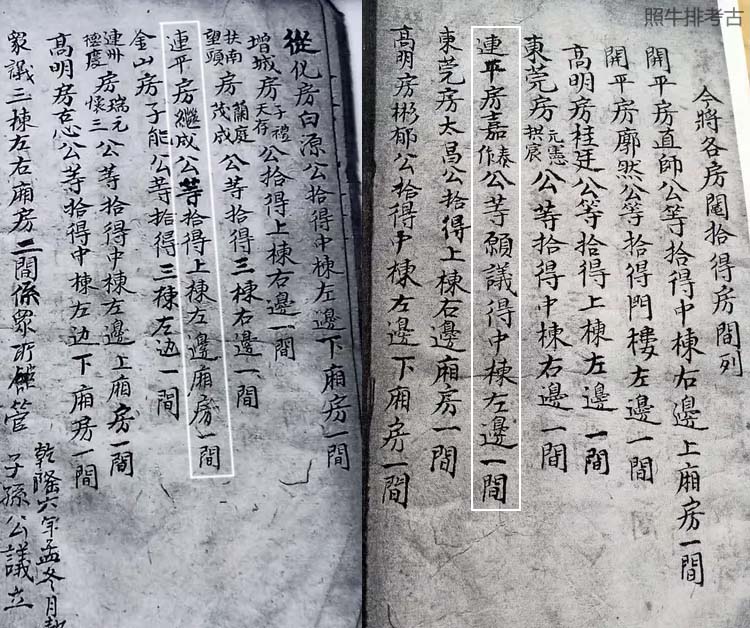 照牛排考古
今將各房鬮拾得房間列
開平房直師公等拾得中棟右邊上廂房一間
開平房廓然公等拾得門樓左邊一間
高明房桂廷公等拾得上棟左邊一間
東莞房元憲拱宸公等拾得中棟右邊一間
連平房嘉作泰公等願議得中棟左邊一間
東莞房太昌公拾得上棟右邊廂房一間
高明房彬郁公拾得中棟左邊下廂房一間
從化房白源公拾得中棟左邊下廂房一間
增城房子禮天存公拾得上棟右邊一間
扶南望頭房蘭庭茂成公等拾得三棟右邊一間
連平房繼成公等拾得上棟左邊廂房一間
金山房子能公等拾得三棟左边一間
連州房瑞元懷三公等拾得中棟左邊上廂房一間
高明房古心公等拾得中棟左边下廂房一間
眾議三棟左右廂房二間係眾所管 子孫公議立
乾隆六年孟冬月